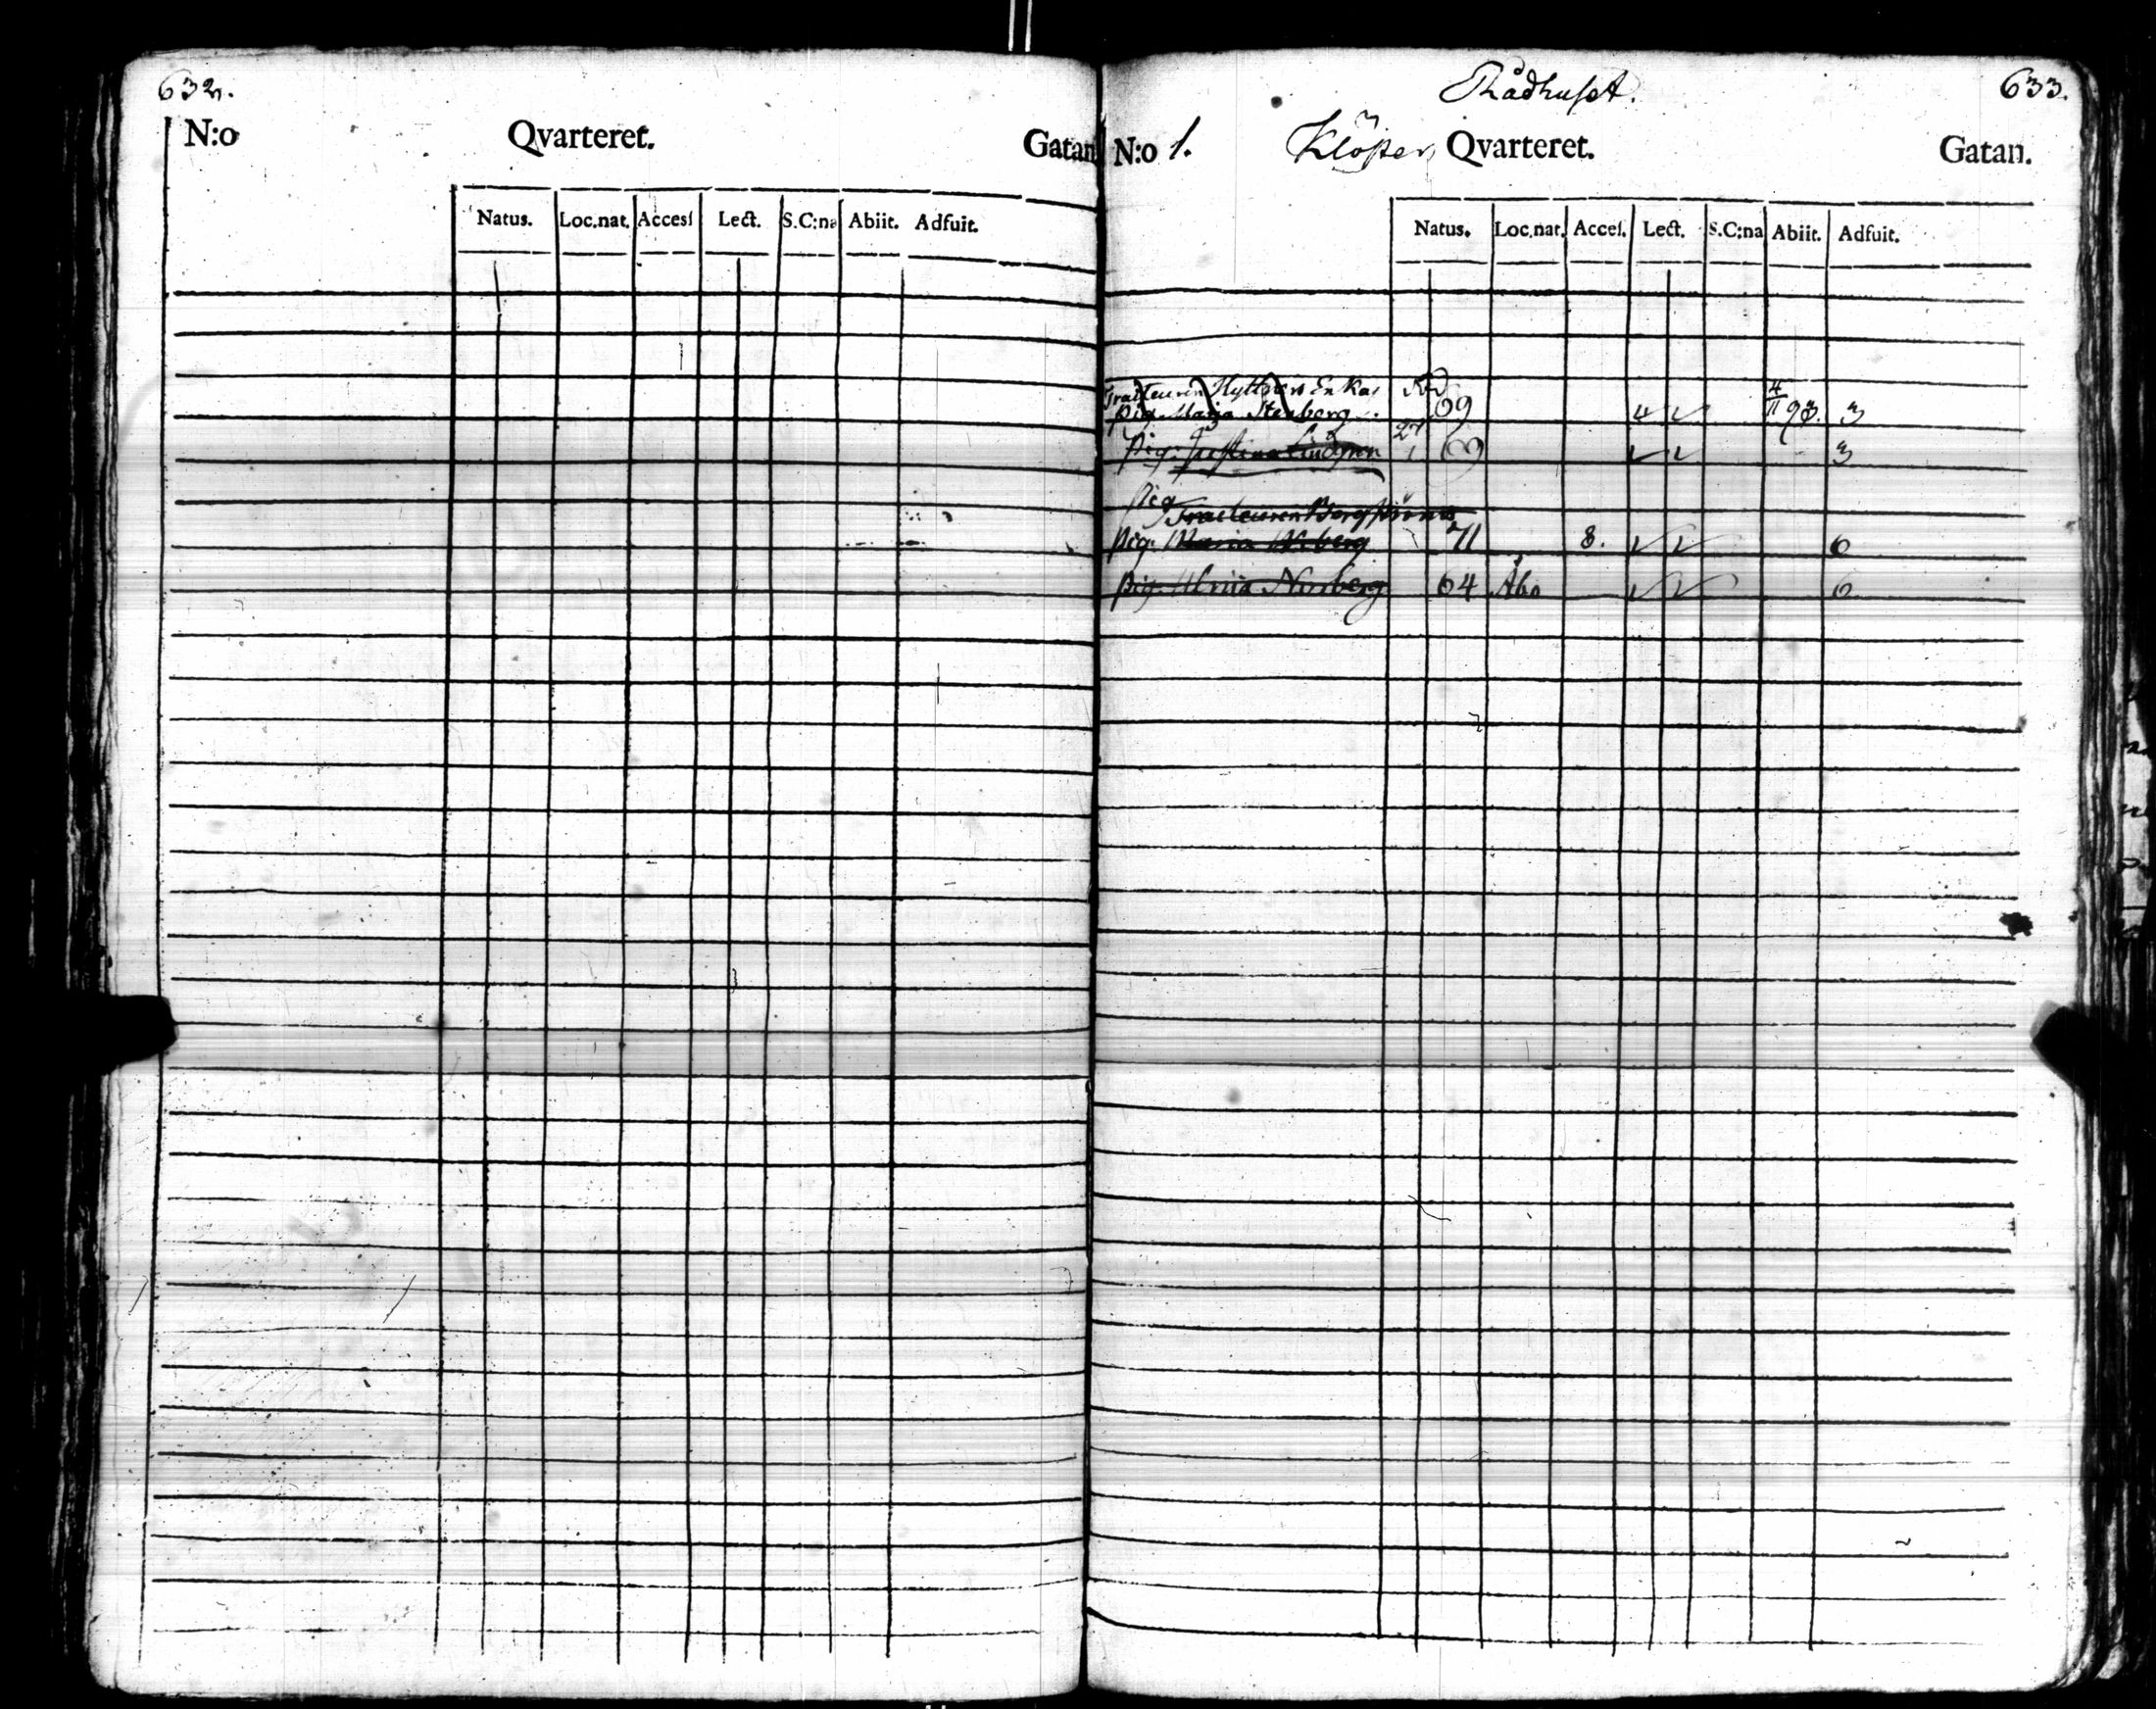 632.
N:o Qvarteret. Gatan
Natus. Loc.nat. Accesſ Lect. S.C:na Abiit. Adfuit.
Rådhuset. 633.
N:o 1. Klöster Qvarteret. Gatan.
Natus. Loc.nat. Acceſ. Lect. S.C:na Abiit. Adfuit.
Tracteuren Enkas
Pig. Maria Stenberg 69 4/11 93. 3
27
Pig. Justina Lindgren 1 69 3
Pig
Tracteuren Bergströms
Pig. Maria 71 8. 6
Pig. Norberg 64 Åbo 6